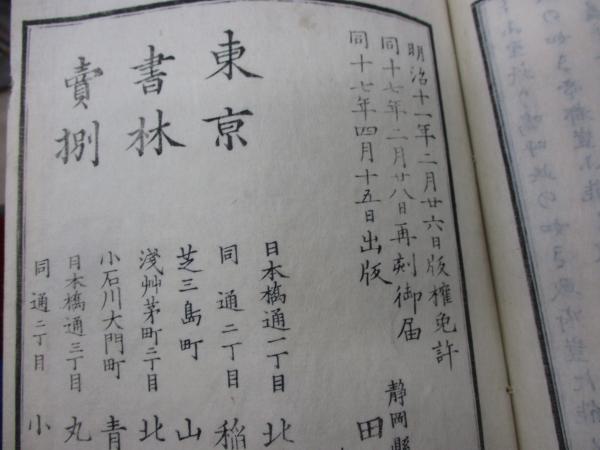 明治十一年二月廿六日版權免許
同十七年二月廿八日再刻御届
同十七年四月十五日出版
静岡縣
田
東京
書林
賣捌
日本橋通一丁目 北
同 通二丁目 稲
芝三島町 山
淺艸茅町二丁目 北
小石川大門町 青
日本橋通三丁目 丸
同 通二丁目 小